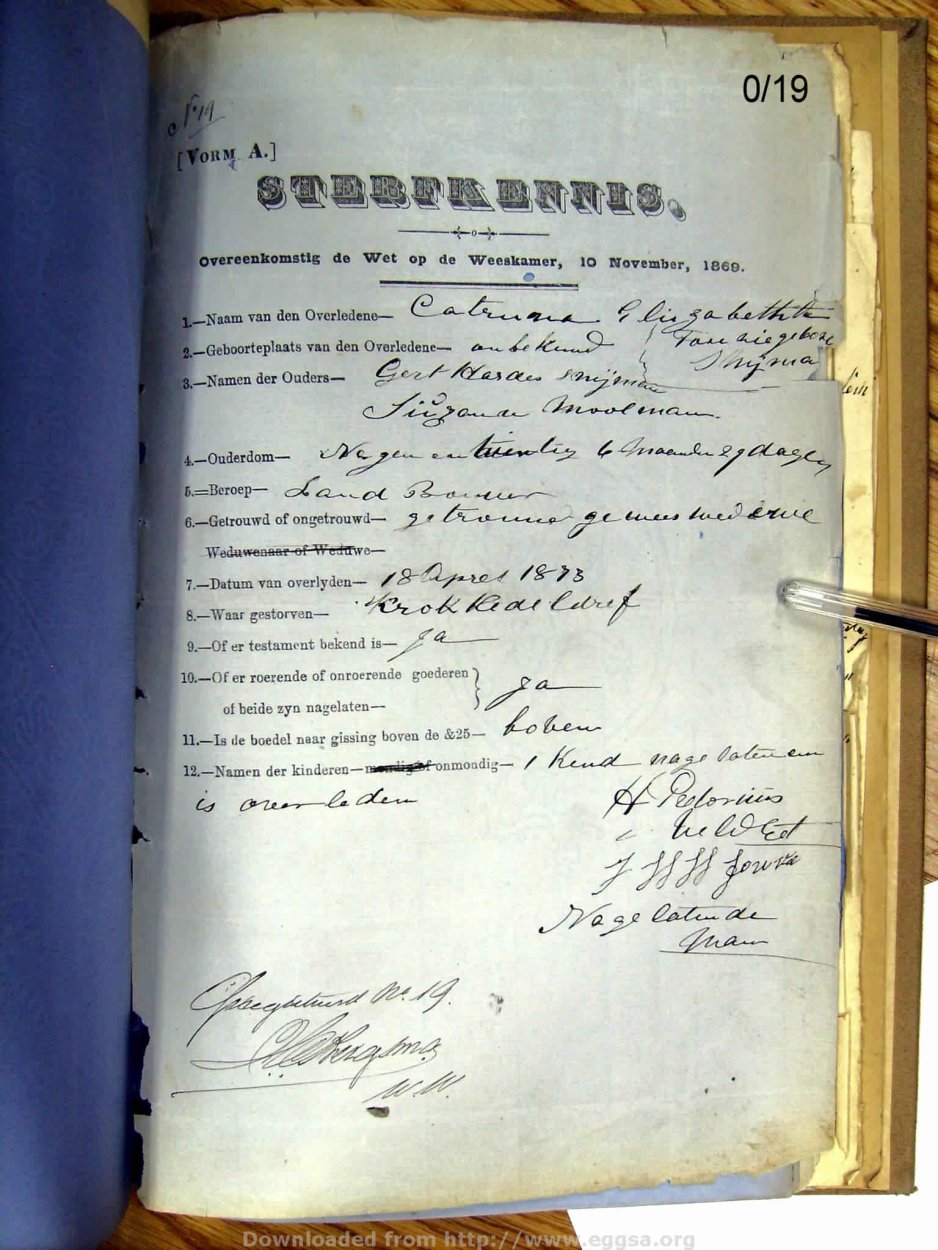 0/19
No 19
[VORM A.]
STERFKENNIS.
Overeenkomstig de Wet op de Weeskamer, 10 November, 1869.
1.—Naam van den Overledene— Catriena Elizabetht
2.—Geboorteplaats van den Overledene— onbekend
Snyman
3.—Namen der Ouders— Gert Hardes Snijman
Suzanna Moolman
4.—Ouderdom— Negen en twintig 6 Maanden 29 dagen
5.—Beroep— Land Bouwer
6.—Getrouwd of ongetrouwd— getrouwd gewees
Weduwenaar of Weduwe—
7.—Datum van overlyden— 18 Aprel 1873
8.—Waar gestorven—
9.—Of er testament bekend is— ja
10.—Of er roerende of onroerende goederen } ja
of beide zyn nagelaten—
11.—Is de boedel naar gissing boven de &25— boven
12.—Namen der kinderen—mondig of onmondig— 1 Kend nage laten en
is over leden
H Pretorius
Nage latende
man
No. 19.
Downloaded from http://www.eggsa.org